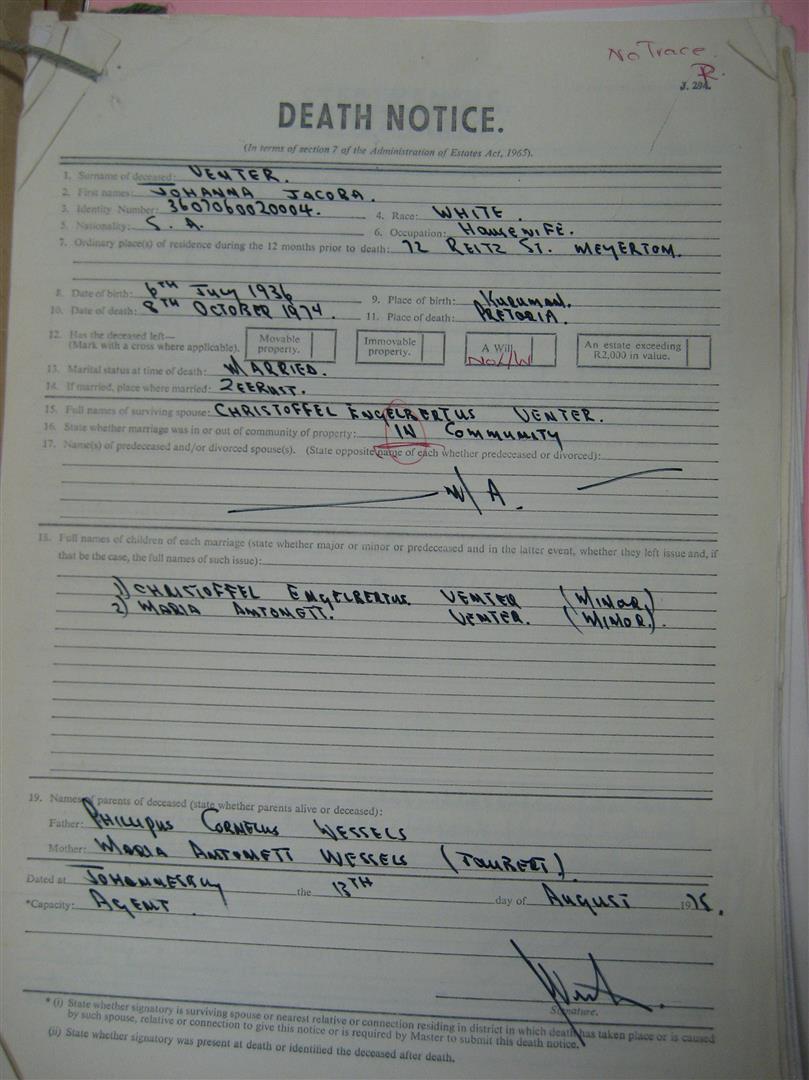 No Trace.
J. 294.
DEATH NOTICE.
(In terms of section 7 of the Administration of Estates Act, 1965).
1. Surname of deceased: VENTER.
2. First names: JOHANNA JACOBA.
3. Identity Number: 3607060020004. 4. Race: WHITE.
5. Nationality: S. A. 6. Occupation: HOUSEWIFE.
7. Ordinary place(s) of residence during the 12 months prior to death: 72 REITZ ST. MEYERTON.
8. Date of birth: 6TH JULY 1936 9. Place of birth: KURUMAN.
10. Date of death: 8TH OCTOBER 1974 11. Place of death: PRETORIA.
12. Has the deceased left—
(Mark with a cross where applicable). Movable property. Immovable property. A Will An estate exceeding R2,000 in value.
13. Marital status at time of death: MARRIED.
14. If married, place where married: ZEERUST.
15. Full names of surviving spouse: CHRISTOFFEL ENGELBERTUS VENTER.
16. State whether marriage was in or out of community of property: IN COMMUNITY
17. Name(s) of predeceased and/or divorced spouse(s). (State opposite name of each whether predeceased or divorced):
N/A.
18. Full names of children of each marriage (state whether major or minor or predeceased and in the latter event, whether they left issue and, if
that be the case, the full names of such issue):
1) CHRISTOFFEL ENGELBERTUS VENTER (MINOR)
2) MARIA ANTONETT. VENTER. (MINOR).
19. Names of parents of deceased (state whether parents alive or deceased):
Father: PHILLIPUS CORNELUS WESSELS
Mother: MARIA ANTONETT WESSELS (TOUBERT).
Dated at JOHANNESBURG the 13TH day of AUGUST 1975.
*Capacity: AGENT.
Signature.
* (i) State whether signatory is surviving spouse or nearest relative or connection residing in district in which death has taken place or is caused
by such spouse, relative or connection to give this notice or is required by Master to submit this death notice.
(ii) State whether signatory was present at death or identified the deceased after death.